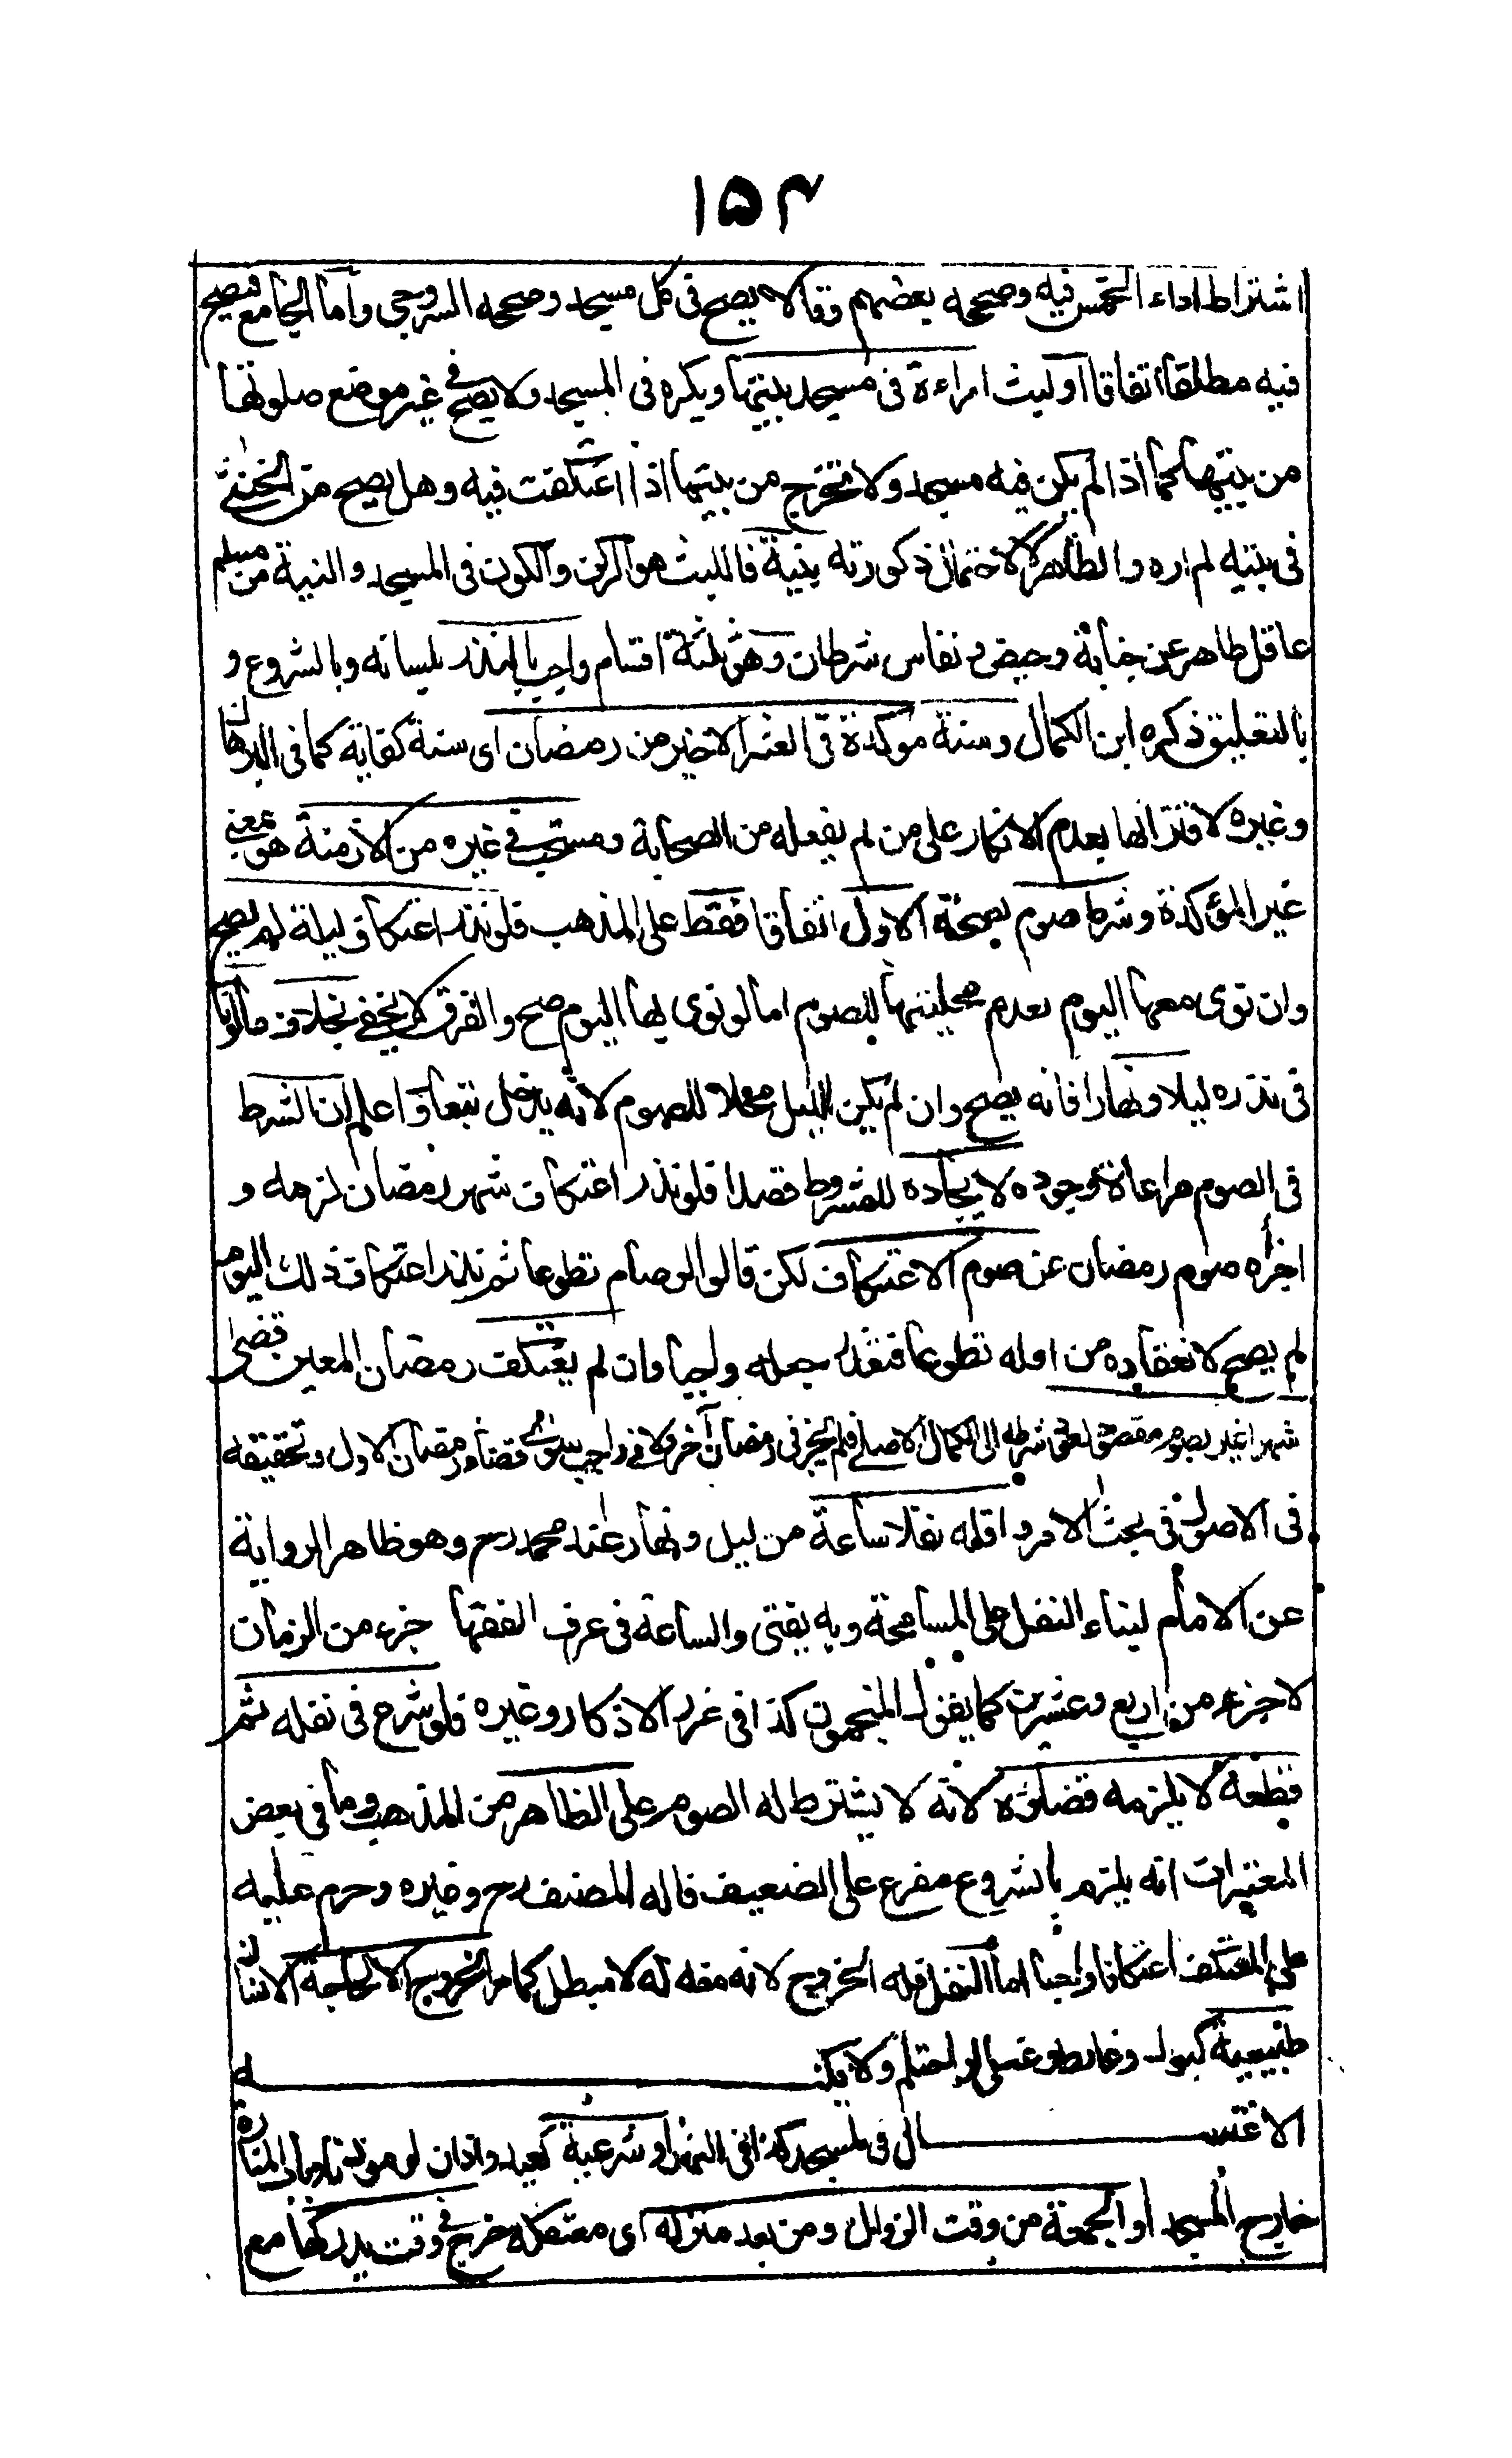 ١٥٣
اشتراط اداء الخمس فيه وصححه بعضهم وقالا يصح فى كل مسجد وصححه السروجى واما الجامع فيصح
فيه مطلقا اتفاقا او لبث امراءة فى مسجد بيتها ويكره فى المسجد ولا يصح فى غير موضع صلوتها
من بيتها كما اذا لم يكن فيه مسجد ولا تخرج من بيتها اذا اعتكفت فيه وهل يصح من الخنثى
فى بيته لم اره والظاهر لا لاحتمال ذكورته بنية فاللبث هو الركن والكون فى المسجد والنية من مسلم
عاقل طاهر عن جنابة وحيض ونفاس شرطان وهو ثلثة اقسام واجب بالنذر بلسانه وبالشروع و
بالتعليق ذكره ابن الكمال وسنة موكدة فى العشر الاخير من رمضان اى سنة كفاية كما فى البرهان
وغيره لاقترانها بعدم الانكار على من لم يفعله من الصحابة ومستحب فى غيره من الازمنة هو بمعنى
غير المؤكدة وشرط صوم لصحة الاول اتفاقا فقط على المذهب فلو نذر اعتكاف ليلة لم يصح
وان نوى معها اليوم لعدم محليتها للصوم اما لو نوى بها اليوم صح والفرق لا يخفى بخلاف ما لو قال
فى نذره ليلا ونهارا فانه يصح وان لم يكن الليل محلا للصوم لانه يدخل تبعا واعلم ان الشرط
فى الصوم مراعاة وجوده لا ايجاده للمشروط قصدا فلو نذر اعتكاف شهر رمضان لزمه و
اجزأه صوم رمضان عن صوم الاعتكاف لكن قالوا لو صام تطوعا ثم نذر اعتكاف ذلك اليوم
لم يصح لانعقاده من اوله تطوعا فتعذر جعله واجبا وان لم يعتكف رمضان المعين قضى
شهرا غيره بصوم مقصود لعود شرطه الى الكمال الاصلى فلم يجز فى رمضان آخر ولا فى واجب سوى قضاء رمضان الاول وتحقيقه
فى الاصول فى بحث الامر واقله نفلا ساعة من ليل ونهار عند محمد رح وهو ظاهر الرواية
عن الامام لبناء النفل على المسامحة وبه يفتى والساعة فى عرف الفقها جزء من الزمان
لا جزء من اربع وعشرين كما يقول المنجمون كذا فى غرر الاذكار وغيره فلو شرع فى نفله ثم
قطعه لا يلزمه قضاؤه لانه لا يشترط له الصوم على الظاهر من المذهب وما فى بعض
المعتبرات انه يلزم بالشروع مفرع على الضعيف قاله المصنف رح وغيره وحرم عليه
على المعتكف اعتكافا واجبا اما النفل فله الخروج لانه منه له لا مبطل كما مر الخروج الا لحاجة الانسان
طبيعية كبول وغائط وغسل لو احتلم ولا يمكنه
الاغتسال فى المسجد كذا فى النهر او شرعية كعيد واذان لو موذنا وباب المنارة
خارج المسجد او الجمعة من وقت الزوال ومن بعد منزله اى معتكفه خرج فى وقت يدركها مع